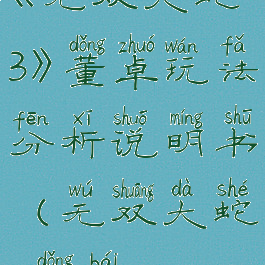 《无双大蛇
dǒng zhuó wán fǎ
3》董卓玩法
fēn xī shuō míng shū
分析说明书
wú shuāng dà shé
(无双大蛇
dǒng bái